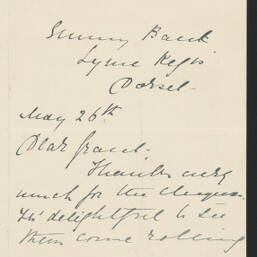 Sunny Bank
Lyme Regis
Dorset.
May 26th
Dear Grace.
Thanks very
much for the cheques.
Tis' delightful to see
them come rolling